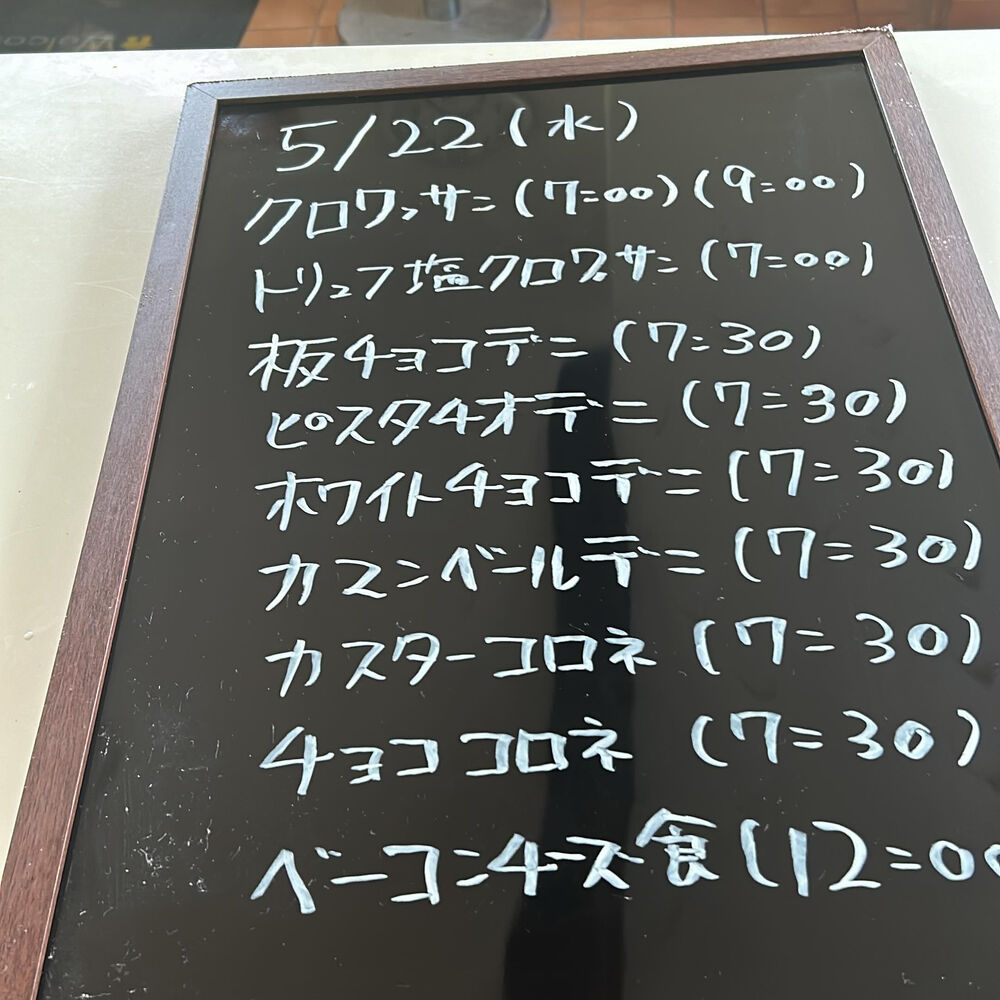 Welcom
5/22(水)
クロワッサン(7:00)(9:00)
トリュフ塩クロワッサン(7:00)
板チョコデニ(7:30)
ピスタチオデニ(7:30)
ホワイトチョコデニ(7:30)
カマンベールデニ(7:30)
カスターコロネ(7:30)
チョココロネ(7:30)
ベーコンチーズ食(12:00